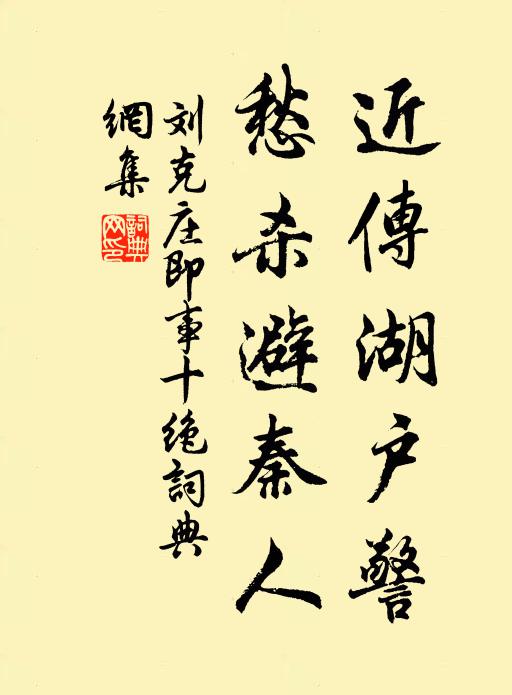 近傳湖户警
愁杀避秦人
刘克庄即事十绝詞典
網集
詞典
網印